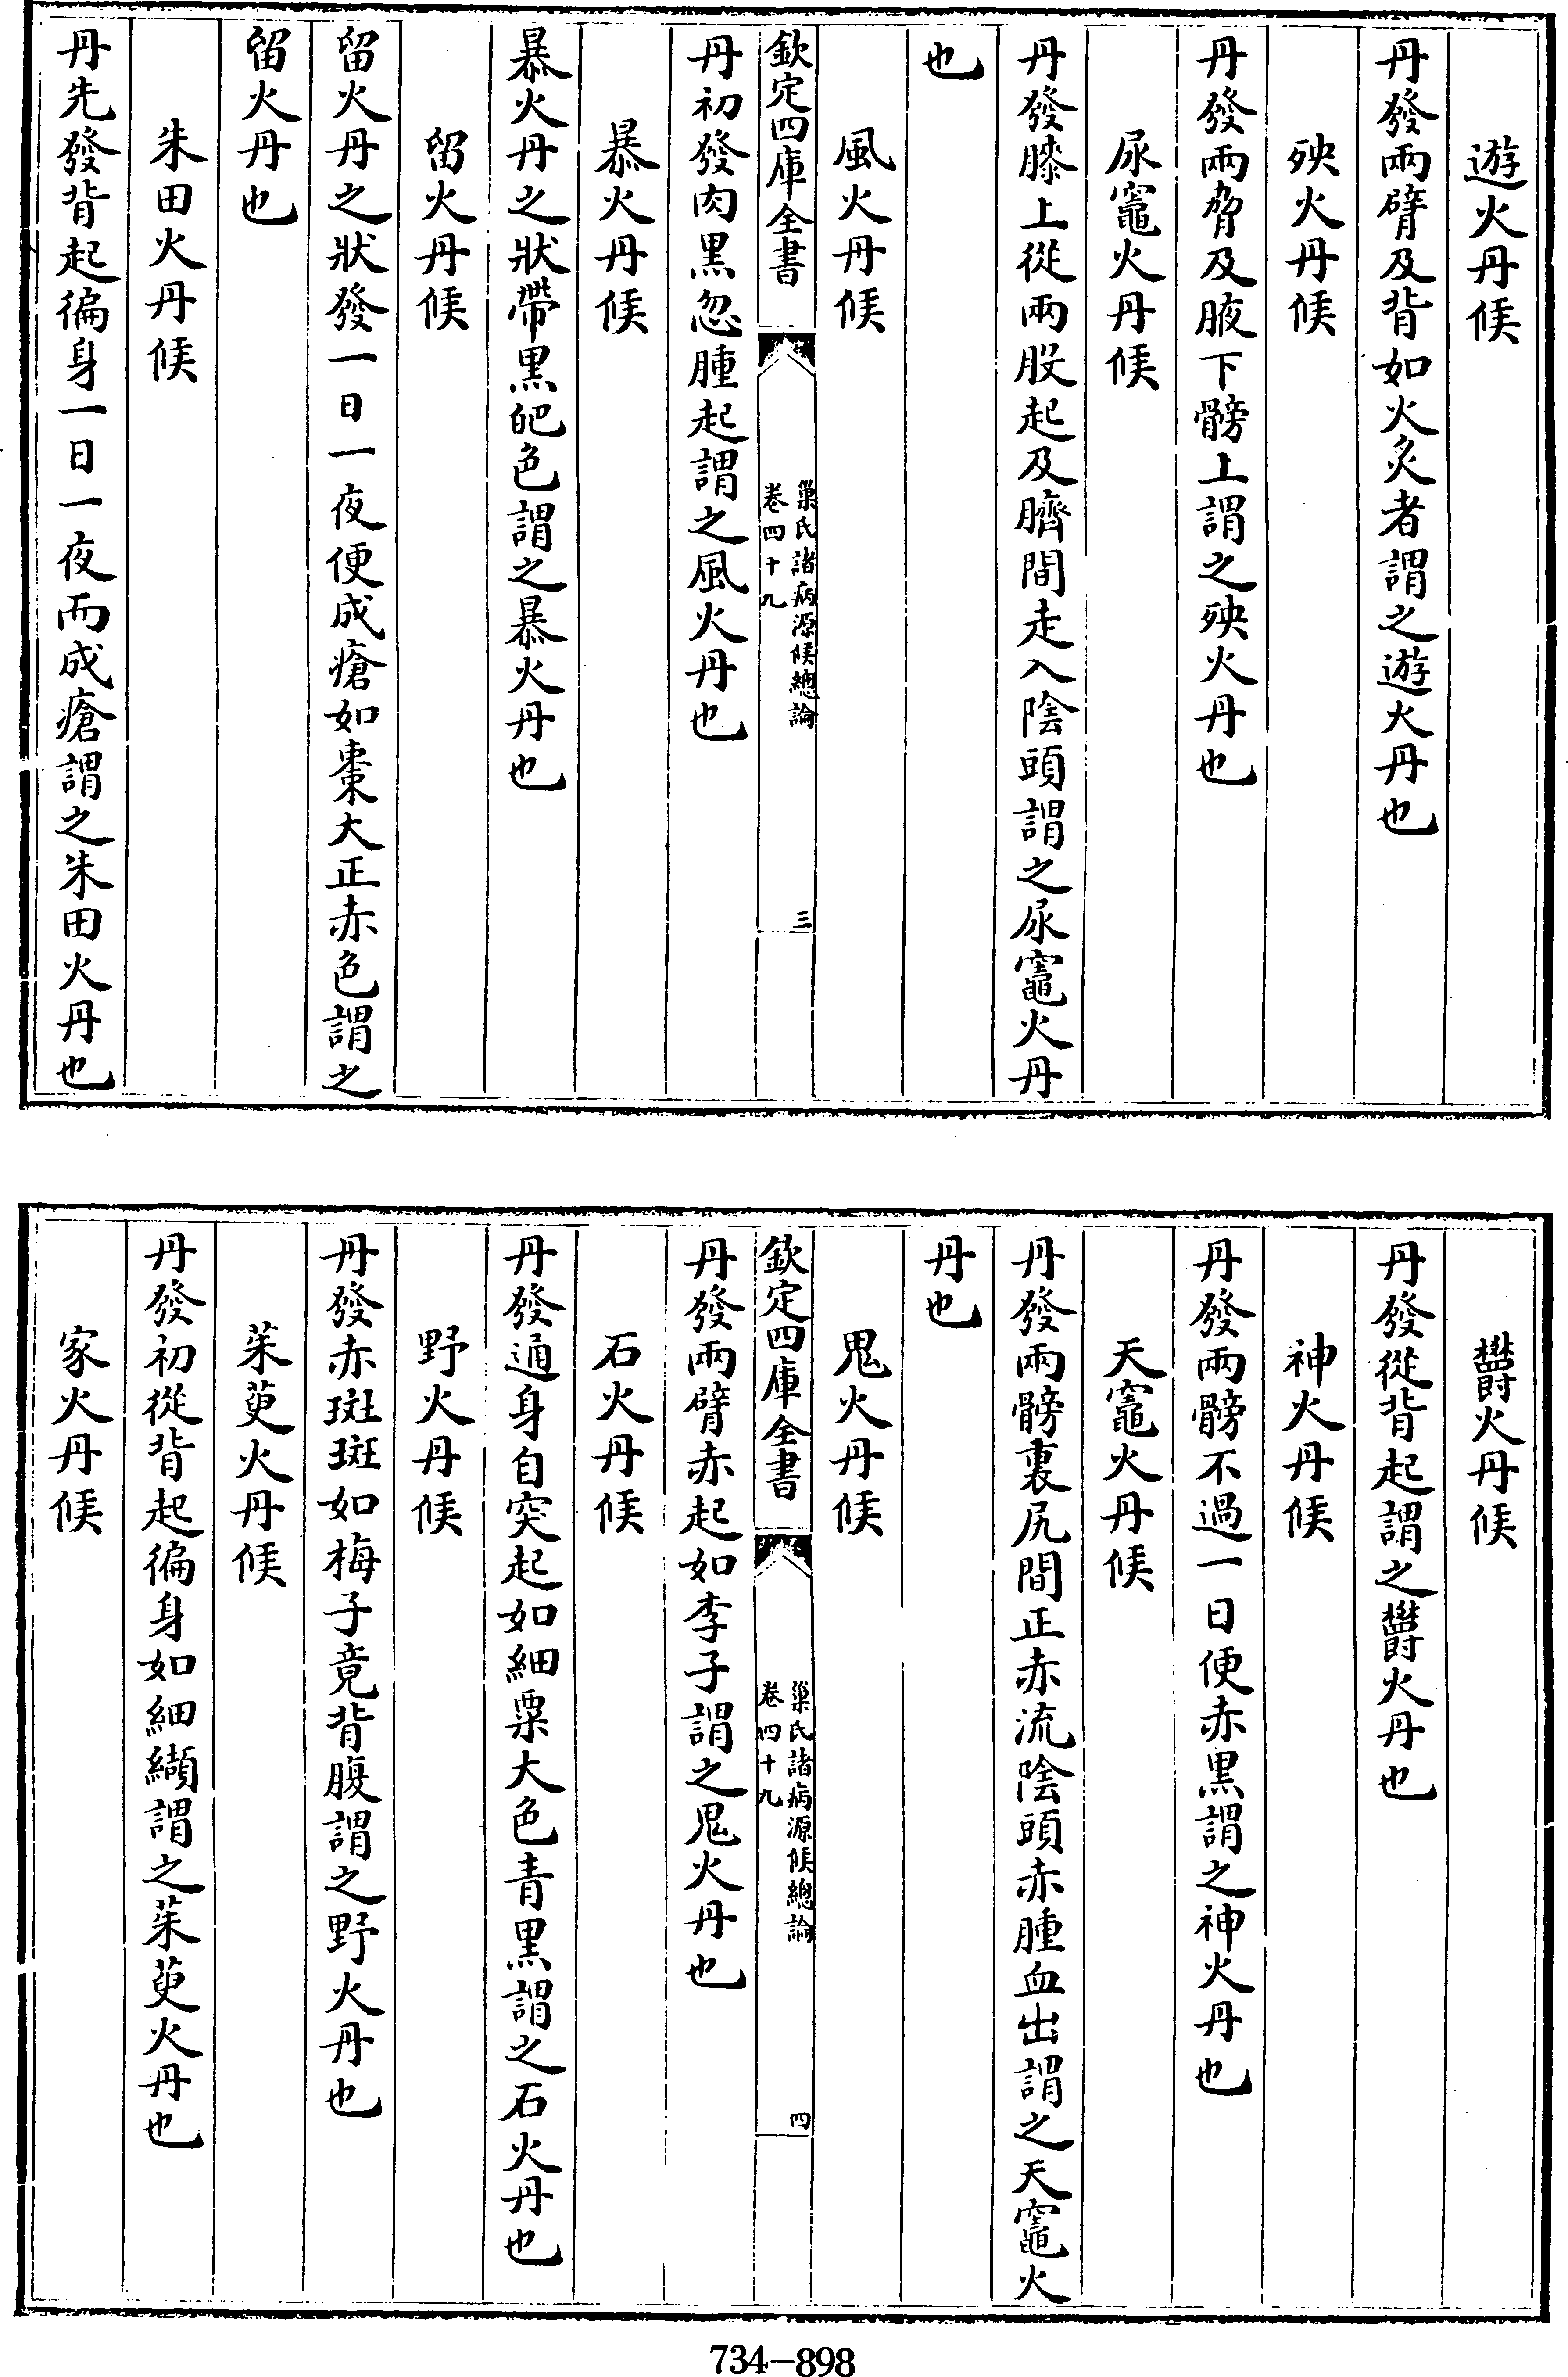 遊火丹候
丹發兩臂及背如火炙者謂之遊火丹也
殃火丹候
丹發兩脅及腋下髈上謂之殃火丹也
尿竈火丹候
丹發膝上從兩股起及臍間走入陰頭謂之尿竈火丹
也
風火丹候
欽定四庫全書
巢氏諸病源候總論
卷四十九
三
丹初發肉黑忽腫起謂之風火丹也
暴火丹候
暴火丹之狀帶黑皅色謂之暴火丹也
留火丹候
留火丹之狀發一日一夜便成瘡如棗大正赤色謂之
留火丹也
朱田火丹候
丹先發背起徧身一日一夜而成瘡謂之朱田火丹也
欝火丹候
丹發從背起謂之欝火丹也
神火丹候
丹發兩髈不過一日便赤黑謂之神火丹也
天竈火丹候
丹發兩髈裏尻間正赤流陰頭赤腫血出謂之天竈火
丹也
鬼火丹候
欽定四庫全書
巢氏諸病源候總論
卷四十九
四
丹發兩臂赤起如李子謂之鬼火丹也
石火丹候
丹發通身自突起如細粟大色青黑謂之石火丹也
野火丹候
丹發赤斑斑如梅子竟背腹謂之野火丹也
茱萸火丹候
丹發初從背起徧身如細纈謂之茱萸火丹也
家火丹候
734-898